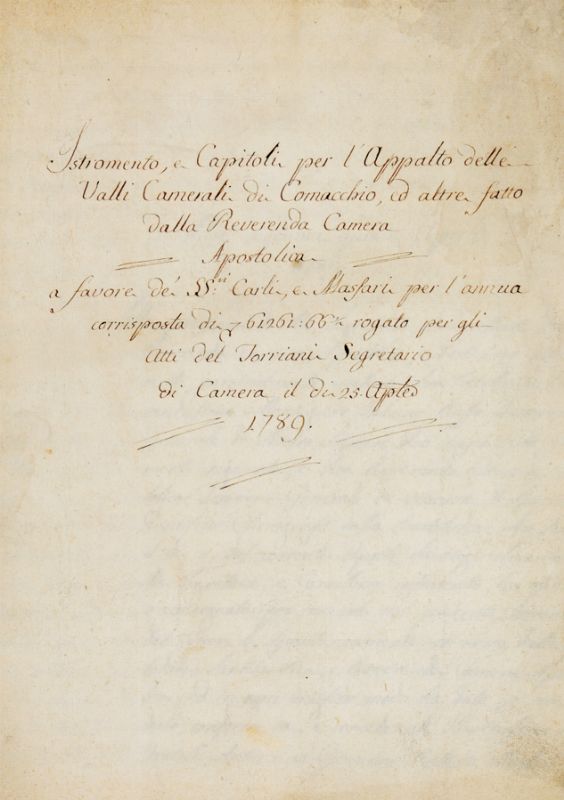 Istromento, e Capitoli per l'Appalto delle
Valli Camerali di Comacchio, ed altre fatto
dalla Reverenda Camera
Apostolica
a favore de' SS.ri Carli, e Massari per l'annua
corrisposta di 61261:66 rogato per gli
Atti del Torriani Segretario
di Camera il di 25. Aple
1789.